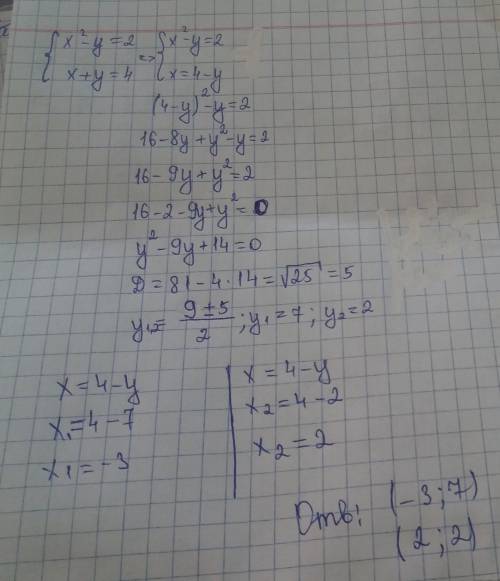 { x² - y = 2 => { x² - y = 2
{ x + y = 4 { x = 4 - y
(4 - y)² - y = 2
16 - 8y + y² - y = 2
16 - 9y + y² = 2
16 - 2 - 9y + y² = 0
y² - 9y + 14 = 0
D = 81 - 4 · 14 = √25 = 5
y₁,₂ = (9 ± 5)/2 ; y₁ = 7 ; y₂ = 2
x = 4 - y
x₁ = 4 - 7
x₁ = -3
x = 4 - y
x₂ = 4 - 2
x₂ = 2
Отв: (-3; 7)
(2; 2)